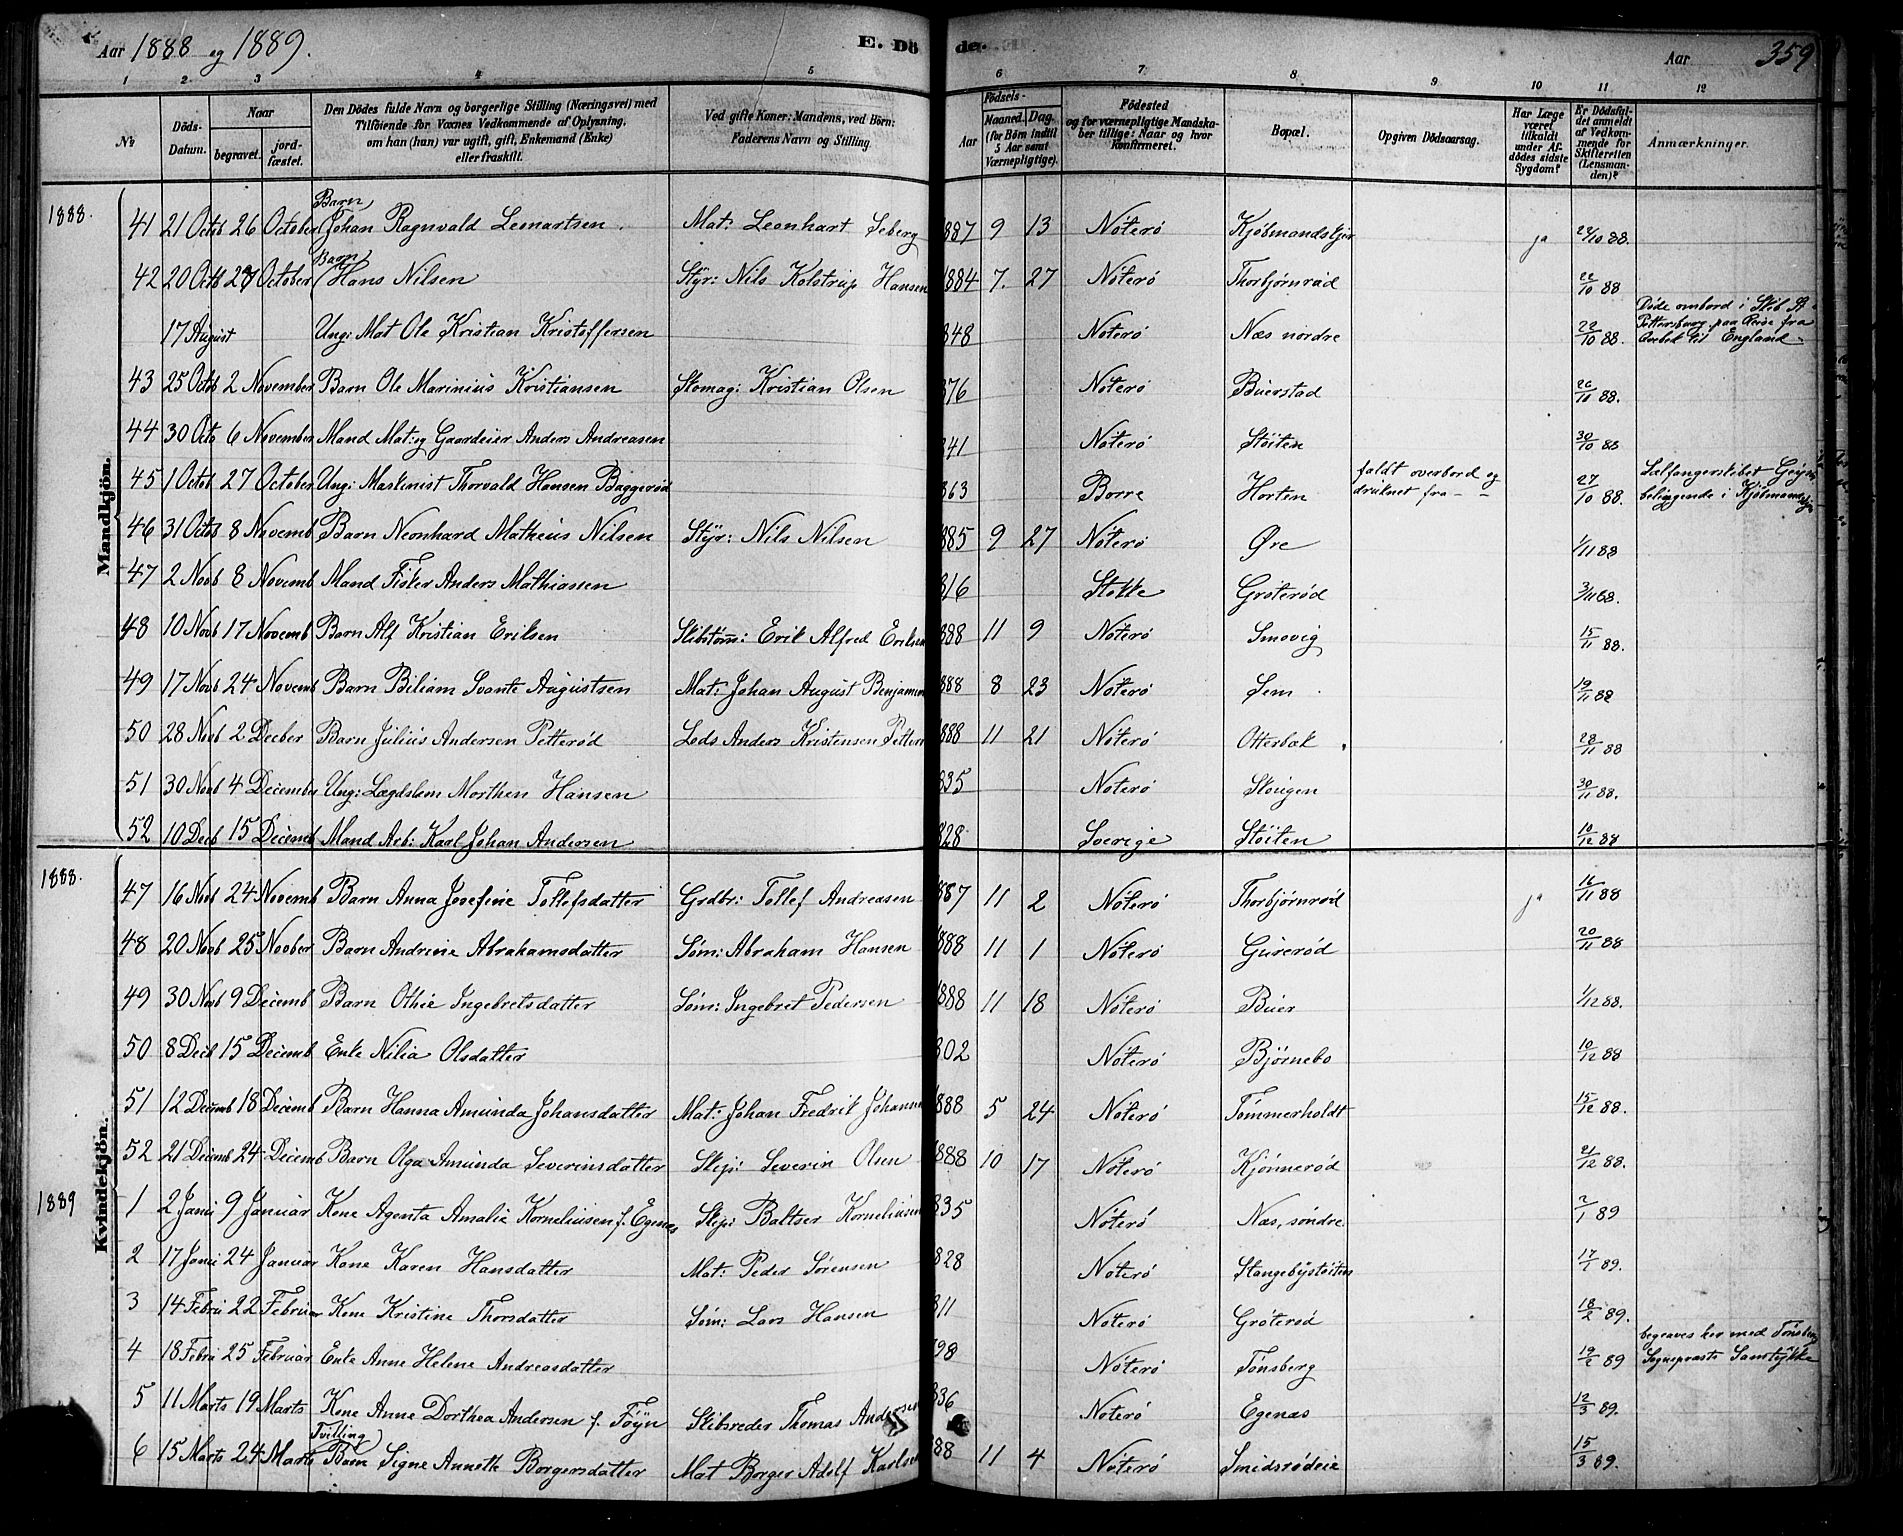 Aar 1888 og 1889. E. Dö de. Aar 359
1 2 3 4 5 6 7 8 9 10 11 12
№
Döds-Datum.
Naar begravet. jordfæstet.
Den Dödes fulde Navn og borgerlige Stilling (Næringsvei) med Tilføiende for Voxnes Vedkommende af Oplysning, om han (hun) var ugift, gift, Enkemand (Enke) eller fraskilt.
Ved gifte Koner: Mandens, ved Börn: Faderens Navn og Stilling.
Födsels- Aar Maaned. Dag. (for Börn indtil 5 Aar samt Værnepligtige).
Födested og for værnepligtige Mandskaber tillige: Naar og hvor konfirmeret.
Bopæl.
Opgiven Dödsaarsag.
Har Læge været tilkaldt under Afdödes sidste Sygdom?
Er Dödsfaldet anmeldt af Vedkommende for Skifteretten (Lensmanden)?
Anmærkninger.
Mandkjön.
1888.
41 21 Octob 26 October Barn Johan Ragnvald Leonartsen. Mat: Leonhart Seberg 887 9 13 Nöterö Kjöbmandskjer ja 24/10 88.
42 20 Octb 27 October Barn Hans Nilsen Styr: Nils Kolstrup Hansen 1884 7. 27 Nöterö Thorbjørnrød 22/10 88
17 August Ung: Mat Ole Kristian Kristoffersen 848 Nöterö Næs nordre 22/10 88. Døde ombord i Skib Pettersburg paa Reise fra Qvebek til England
43 25 Octob 2 November Barn Ole Marinius Kristiansen Skomag: Kristian Olsen 876 Nöterö Buerstad 26/10 88.
44 30 Octo 6 November Mand Mat: og Gaardeier Anders Andreasen 841 Nöterö Støiten 30/10 88
45 1 Octob 27 October Ung: Maskinist Thorvald Hansen Baggerød 863 Borre Horten faldt overbord og druknet fra 27/10 88. Sælfangerskibet beliggende i Kjöbmandskjær
46 31 Octob 8 Novemb Barn Neonhard Matheus Nilsen Styr: Nils Nilsen 885 9 27 Nöterö Øre 1/11 88
47 2 Novb 8 Novemb Mand Fisker Anders Mathiassen 816 Stokke Groterød 3/11 88.
48 10 Novb 17 Novemb Barn Alf Kristian Eriksen Skibstøm: Erik Alfred Eriksen 888 11 9 Nöterö Smovig 15/11 88.
49 17 Novb 24 Novemb Barn Biliam Svante Augustsen Mat: Johan August Benjamin 888 8 23 Nöterö Sem. 19/11 88
50 28 Novb 2 Decber Barn Julius Andersen Petterød Lods Anders Kristensen Petterø 888 11 21 Nöterö Otterbæk. 28/11 88
51 30 Novb 4 December Ung: Lægdslem Morthen Hansen 835 Nöterö Skougen 30/11 88.
52 10 Decb 15 Decemb Mand Arb: Karl Johan Andersen 828 Sverige Støiten 10/12 88
Kvindekjön.
1888.
47 16 Novb 24 Novemb Barn Anna Josefine Tollefsdatter Grdbr: Tollef Andreasen 887 11 2 Nöterö Thorbjørnrød ja 16/11 88
48 20 Novb 25 Noober Barn Andrine Abrahamsdatter Søm: Abraham Hansen 888 11 1 Nöterö Gurerød 20/11 88
49 30 Novb 9 Decemb Barn Othie Ingebretsdatter Søm: Ingebret Pedersen 888 11 18 Nöterö Buer 1/12 88.
50 8 Decb 15 Decemb Enke Nilia Olsdatter 802 Nöterö Bjørnebo 10/12 88
51 12 Decemb 18 Decemb Barn Hanna Amunda Johansdatter Mat: Johan Fredrik Johanne 888 5 24 Nöterö Tømmerholdt 15/12 88.
52 21 Decemb 24 Decemb Barn Olga Amunda Severinsdatter Skip: Severin Olsen 888 10 17 Nöterö Kjønnerød 21/12 88.
1889
1 2 Janu 9 Januar Kone Agenta Amalie Korneliusen f. Egenæs Skip: Baltser Korneliusen 835 Nöterö Næs, søndre 7/1 89
2 17 Janu 24 Januar Kone Karen Hansdatter Mat: Peder Sørensen 828 Nöterö Stangebystøiten 17/1 89.
3 14 Febru 22 Februar Kone Kristine Thorsdatter Søm: Lars Hansen 811 Nöterö Groterød 18/2 89.
4 18 Febru 25 Februar Enke Anne Helene Andreasdatter 798 Nöterö Tønsberg 19/2 89 begraves her med Tønsberg Sognepræsts Samtykke
5 11 Marts 19 Marts Kone Anne Dorthea Andersen f. Føyn Skibsreder Thomas Andersen 836 Nöterö Egenæs 12/3 89.
6 15 Marts 24 Marts Tvilling Barn Signe Annette Borgersdatter Mat Borger Adolf Karlsen 888 11 4 Nöterö Smidsrødeie 15/3 89.